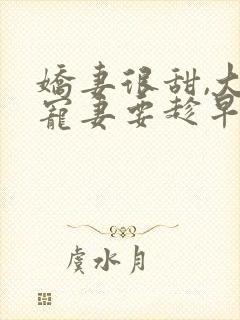 嬌妻很甜,大
寵妻要趁早
虞水月